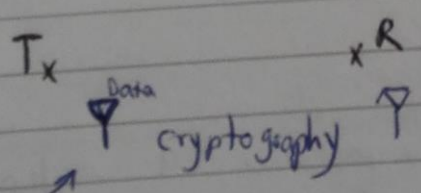 Tx x R
Data
cryptography